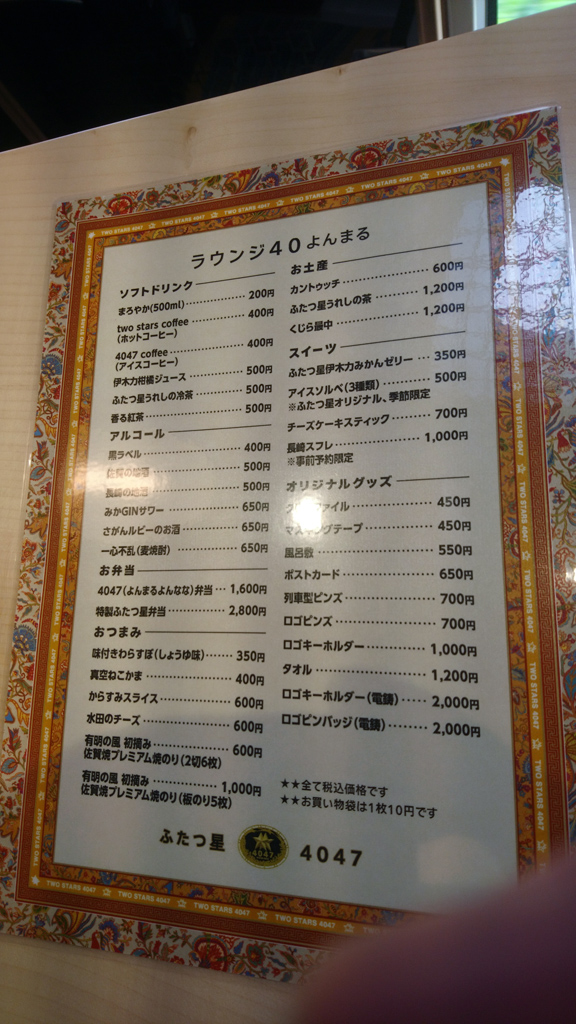 ラウンジ40よんまる
ソフトドリンク
まろやか(500ml) 200円
two stars coffee 400円
(ホットコーヒー)
4047 coffee 400円
(アイスコーヒー)
伊木力柑橘ジュース 500円
ふたつ星うれしの冷茶 500円
香る紅茶 500円
アルコール
黒ラベル 400円
佐賀の地酒 500円
長崎の地酒 500円
みかGINサワー 650円
さがんルビーのお酒 650円
一心不乱(麦焼酎) 650円
お弁当
4047(よんまるよんなな)弁当 1,600円
特製ふたつ星弁当 2,800円
おつまみ
味付きわらすぼ(しょうゆ味) 350円
真空ねこかま 400円
からすみスライス 600円
水田のチーズ 600円
有明の風 初摘み 600円
佐賀焼プレミアム焼のり(2切6枚)
有明の風 初摘み 1,000円
佐賀焼プレミアム焼のり(板のり5枚)
お土産
カントゥッチ 600円
ふたつ星うれしの茶 1,200円
くじら最中 1,200円
スイーツ
ふたつ星伊木力みかんゼリー 350円
アイスソルベ(3種類) 500円
※ふたつ星オリジナル、季節限定
チーズケーキスティック 700円
長崎スフレ 1,000円
※事前予約限定
オリジナルグッズ
ファイル 450円
マスキングテープ 450円
風呂敷 550円
ポストカード 650円
列車型ピンズ 700円
ロゴピンズ 700円
ロゴキーホルダー 1,000円
タオル 1,200円
ロゴキーホルダー(電鋳) 2,000円
ロゴピンバッジ(電鋳) 2,000円
★★全て税込価格です
★★お買い物袋は1枚10円です
ふたつ星 4047 4047